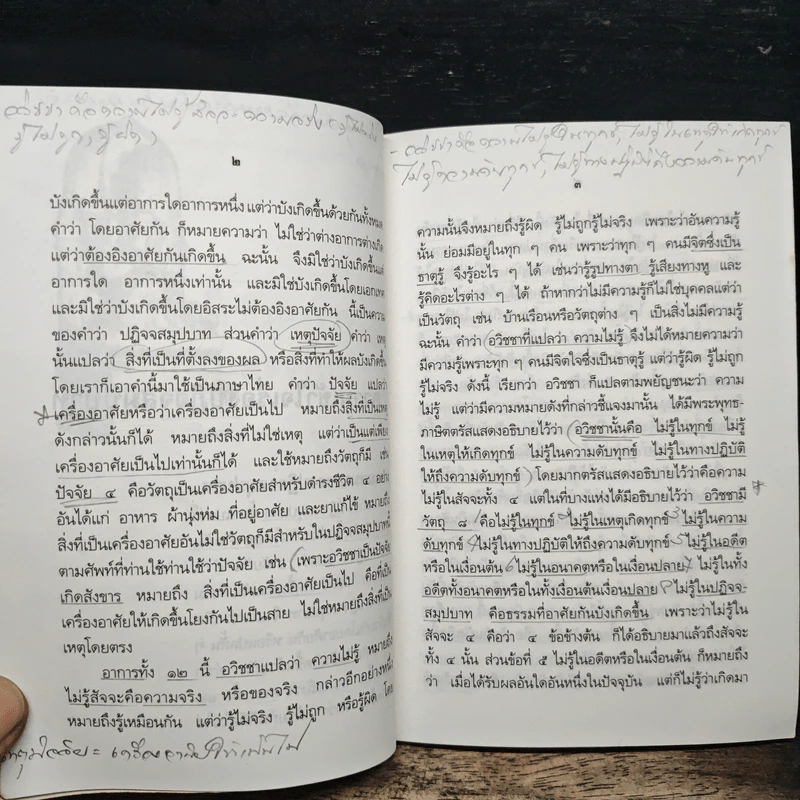 ๒
บังเกิดขึ้นแต่อาการใดอาการหนึ่ง แต่ว่าบังเกิดขึ้นด้วยกันทั้งหมด
คำว่า โดยอาศัยกัน ก็หมายความว่า ไม่ใช่ว่าต่างอาการต่างเกิด
แต่ว่าต้องอิงอาศัยกันเกิดขึ้น ฉะนั้น จึงมิใช่ว่าบังเกิดขึ้นแต่
อาการใด อาการหนึ่งเท่านั้น และมิใช่ว่าบังเกิดขึ้นโดยเอกเทศ
และมิใช่ว่าบังเกิดขึ้นโดยอิสระไม่ต้องอิงอาศัยกัน นี้เป็นความ
ของคำว่า ปฏิจจสมุปบาท ส่วนคำว่า เหตุปัจจัย คำว่า เหตุ
นั้นแปลว่า สิ่งที่เป็นที่ตั้งลงของผล หรือสิ่งที่ทำให้ผลบังเกิดขึ้น
โดยเราก็เอาคำนี้มาใช้เป็นภาษาไทย คำว่า ปัจจัย แปลว่า
เครื่องอาศัยหรือว่าเครื่องอาศัยเป็นไป หมายถึงสิ่งที่เป็นเหตุ
ดังกล่าวนั้นก็ได้ หมายถึงสิ่งที่ไม่ใช่เหตุ แต่ว่าเป็นแต่เพียง
เครื่องอาศัยเป็นไปเท่านั้นก็ได้ และใช้หมายถึงวัตถุก็มี เช่น
ปัจจัย ๔ คือวัตถุเป็นเครื่องอาศัยสำหรับดำรงชีวิต ๔ อย่าง
อันได้แก่ อาหาร ผ้านุ่งห่ม ที่อยู่อาศัย และยาแก้ไข้ หมายถึง
สิ่งที่เป็นเครื่องอาศัยอันไม่ใช่วัตถุก็มีสำหรับในปฏิจจสมุปบาทนี้
ตามศัพท์ที่ท่านใช้ท่านใช้ว่าปัจจัย เช่น เพราะอวิชชาเป็นปัจจัย
เกิดสังขาร หมายถึง สิ่งที่เป็นเครื่องอาศัยเป็นไป คือที่เป็น
เครื่องอาศัยให้เกิดขึ้นโยงกันไปเป็นสาย ไม่ใช่หมายถึงสิ่งที่เป็น
เหตุโดยตรง
อาการทั้ง ๑๒ นี้ อวิชชาแปลว่า ความไม่รู้ หมายถึง
ไม่รู้สัจจะคือความจริง หรือของจริง กล่าวอีกอย่างหนึ่ง
หมายถึงรู้เหมือนกัน แต่ว่ารู้ไม่จริง รู้ไม่ถูก หรือรู้ผิด โดย
๓
ความนั้นจึงหมายถึงรู้ผิด รู้ไม่ถูกรู้ไม่จริง เพราะว่าอันความรู้
นั้น ย่อมมีอยู่ในทุก ๆ คน เพราะว่าทุก ๆ คนมีจิตซึ่งเป็น
ธาตุรู้ จึงรู้อะไร ๆ ได้ เช่นว่ารู้รูปทางตา รู้เสียงทางหู และ
รู้คิดอะไรต่าง ๆ ได้ ถ้าหากว่าไม่มีความรู้ก็ไม่ใช่บุคคลแต่ว่า
เป็นวัตถุ เช่น บ้านเรือนหรือวัตถุต่าง ๆ เป็นสิ่งไม่มีความรู้
ฉะนั้น คำว่า อวิชชาที่แปลว่า ความไม่รู้ จึงไม่ได้หมายความว่า
มีความรู้เพราะทุก ๆ คนมีจิตใจซึ่งเป็นธาตุรู้ แต่ว่ารู้ผิด รู้ไม่ถูก
รู้ไม่จริง ดังนี้ เรียกว่า อวิชชา ก็แปลตามพยัญชนะว่า ความ
ไม่รู้ แต่ว่ามีความหมายดังที่กล่าวชี้แจงมานั้น ได้มีพระพุทธ-
ภาษิตตรัสแสดงอธิบายไว้ว่า อวิชชานั้นคือ ไม่รู้ในทุกข์ ไม่รู้
ในเหตุให้เกิดทุกข์ ไม่รู้ในความดับทุกข์ ไม่รู้ในทางปฏิบัติ
ให้ถึงความดับทุกข์ โดยมากตรัสแสดงอธิบายไว้ว่าคือความ
ไม่รู้ในสัจจะทั้ง ๔ แต่ในที่บางแห่งได้มีอธิบายไว้ว่า อวิชชามี
วัตถุ ๘ คือไม่รู้ในทุกข์ ไม่รู้ในเหตุเกิดทุกข์ ไม่รู้ในความ
ดับทุกข์ ไม่รู้ในทางปฏิบัติให้ถึงความดับทุกข์ ไม่รู้ในอดีต
หรือในเงื่อนต้น ไม่รู้ในอนาคตหรือในเงื่อนปลาย ไม่รู้ในทั้ง
อดีตทั้งอนาคตหรือในทั้งเงื่อนต้นเงื่อนปลาย ไม่รู้ในปฏิจจ-
สมุปบาท คือธรรมที่อาศัยกันบังเกิดขึ้น เพราะว่าไม่รู้ใน
สัจจะ ๔ คือว่า ๔ ข้อข้างต้น ก็ได้อธิบายมาแล้วถึงสัจจะ
ทั้ง ๔ นั้น ส่วนข้อที่ ๕ ไม่รู้ในอดีตหรือในเงื่อนต้น ก็หมายถึง
ว่า เมื่อได้รับผลอันใดอันหนึ่งในปัจจุบัน แต่ก็ไม่รู้ว่าเกิดมา